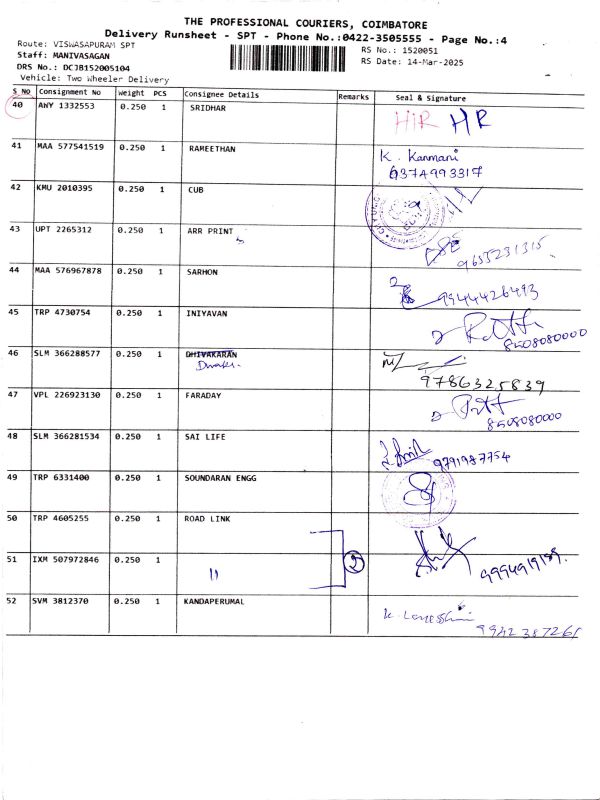 THE PROFESSIONAL COURIERS, COIMBATORE
Delivery Runsheet - SPT - Phone No.:0422-3505555 - Page No.:4
Route: VISWASAPURAM SPT
RS No.: 1520051
Staff: MANIVASAGAN
RS Date: 14-Mar-2025
DRS No.: DCJB152005104
Vehicle: Two Wheeler Delivery
S No Consignment No Weight PCS Consignee Details Remarks Seal & Signature
40 AWY 1332553 0.250 1 SRIDHAR HR HR
41 MAA 577541519 0.250 1 RAMEETHAN K. Kanmani
9374993317
42 KMU 2010395 0.250 1 CUB
43 UPT 2265312 0.250 1 ARR PRINT 9655231315
44 MAA 576967878 0.250 1 SARHON 9944426493
45 TRP 4730754 0.250 1 INIYAVAN 8508080000
46 SLM 366288577 0.250 1 DHIVAKARAN
9786325839
47 VPL 226923130 0.250 1 FARADAY 8508080000
48 SLM 366281534 0.250 1 SAI LIFE 9791987754
49 TRP 6331400 0.250 1 SOUNDARAN ENGG
50 TRP 4605255 0.250 1 ROAD LINK
51 IXM 507972846 0.250 1 11 2
52 SVM 3812370 0.250 1 KANDAPERUMAL
9942387261